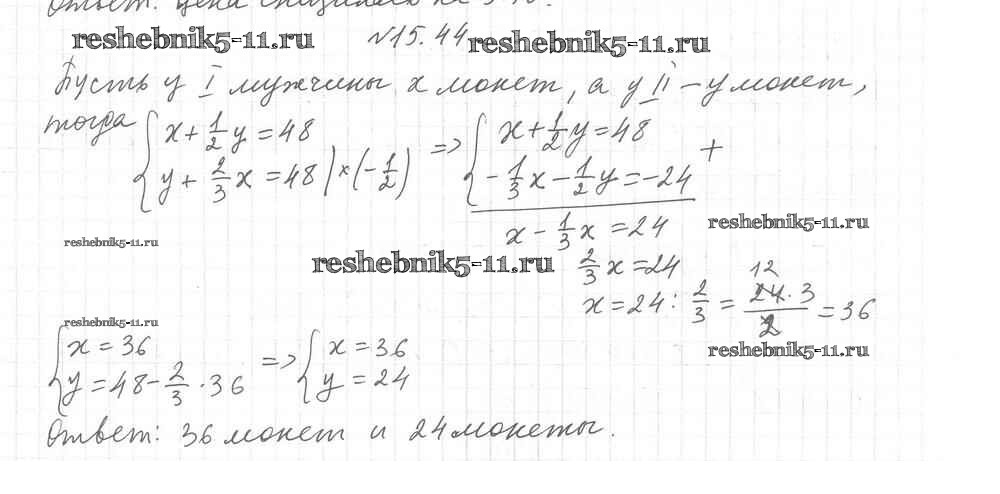 Ответ: цена снизилась на
reshebnik5-11.ru №15.44 reshebnik5-11.ru
Пусть у I мужчины x монет, а у II – y монет,
тогда { x + 1/2 y = 48 => { x + 1/2 y = 48 +
y + 2/3 x = 48 | × (-1/2) - 1/3 x - 1/2 y = -24
x - 1/3 x = 24 reshebnik5-11.ru
reshebnik5-11.ru reshebnik5-11.ru 2/3 x = 24
x = 24 : 2/3 = 24 · 3 / 2 = 36
12
reshebnik5-11.ru
reshebnik5-11.ru
{ x = 36 => { x = 36
y = 48 - 2/3 · 36 y = 24
Ответ: 36 монет и 24 монеты.